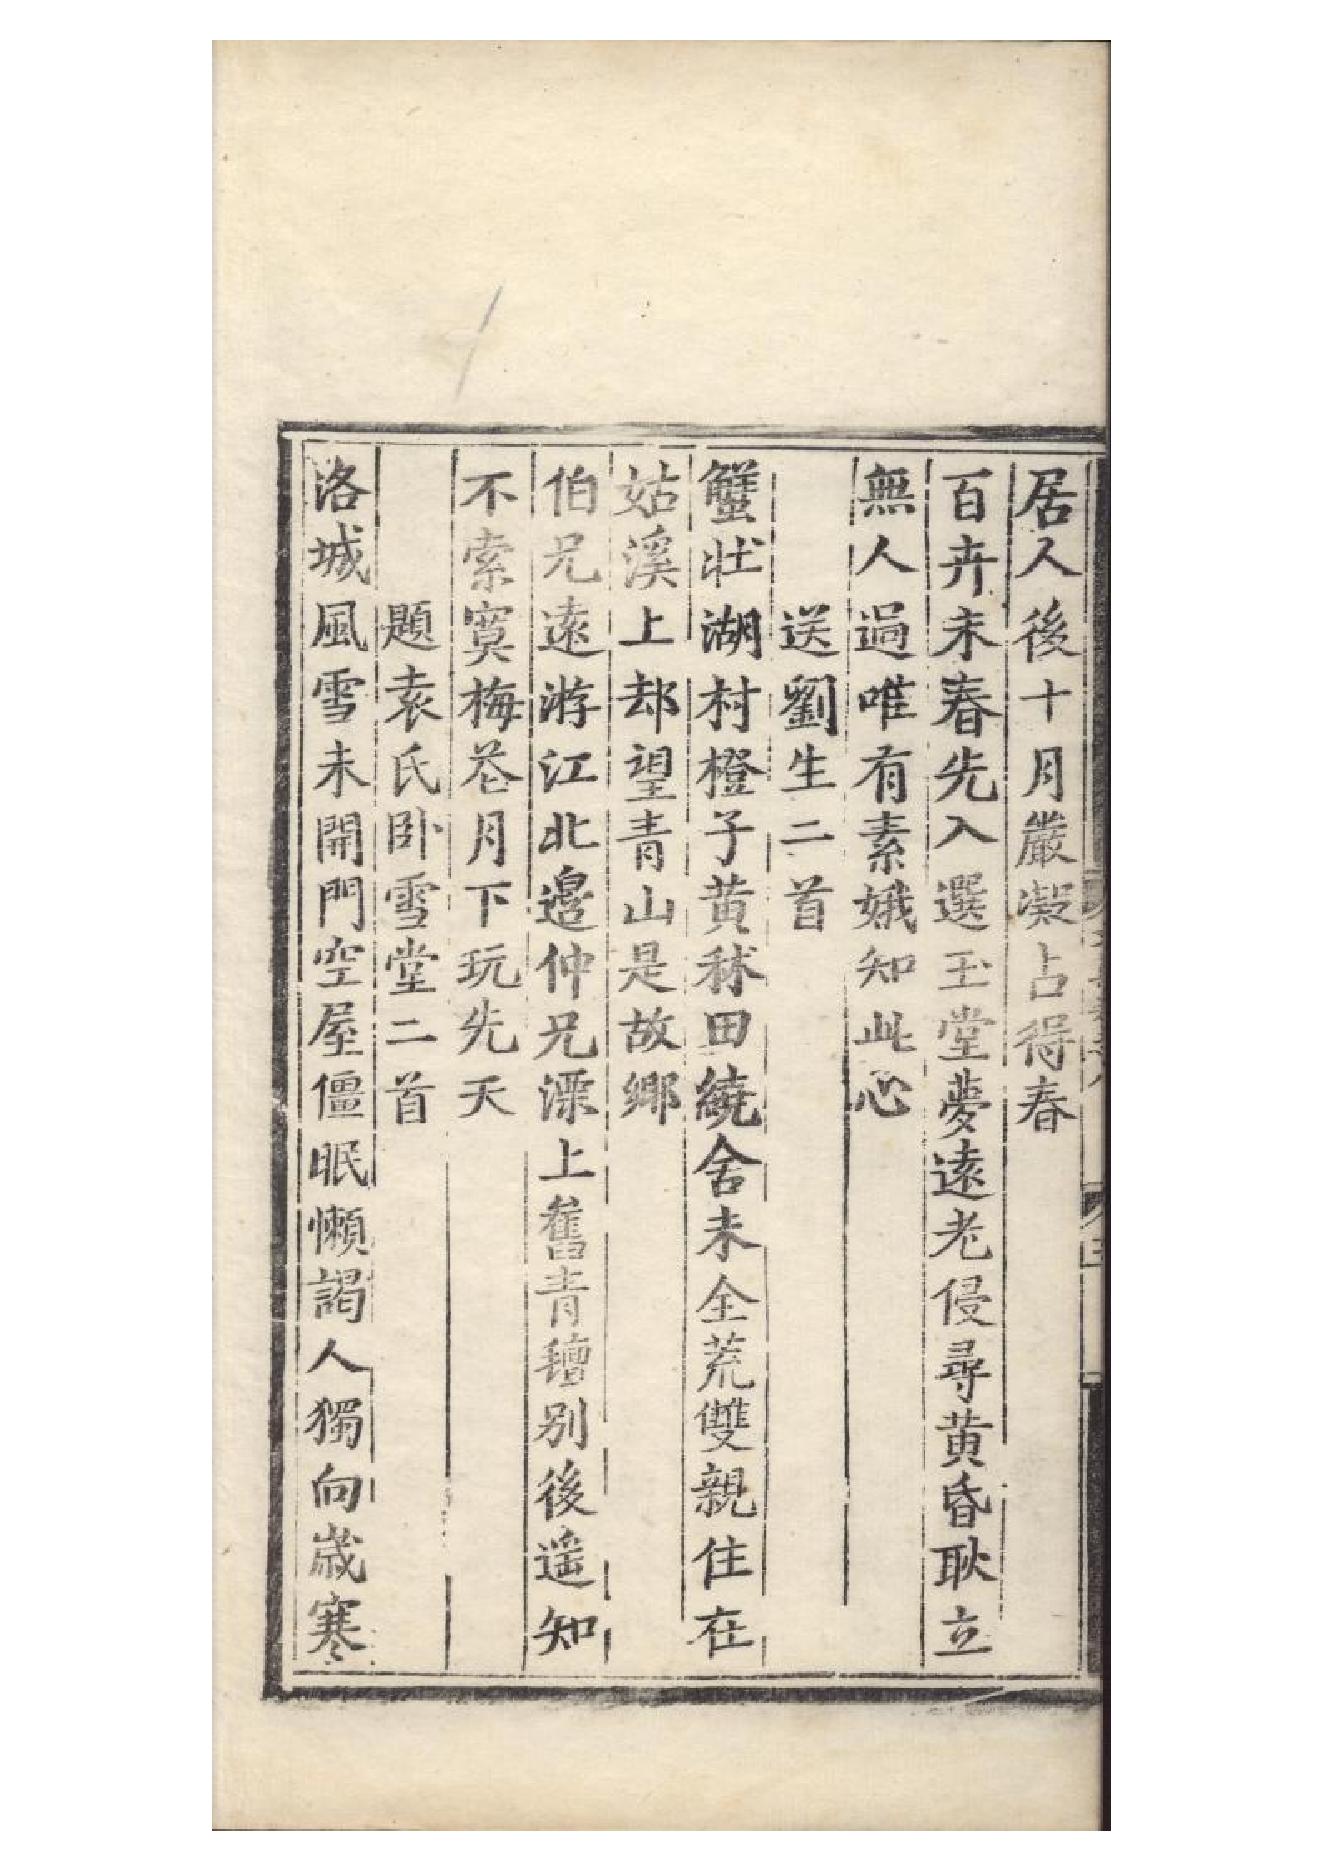 居人後十月嚴凝占得春
百卉未春先入選玉堂夢遠老侵尋黄昏耿立
無人過唯有素娥知此心
送劉生二首
蟹壯湖村橙子黄秫田繞舍未全荒雙親住在
姑溪上却望青山是故鄉
伯兄遠游江北邉仲兄溧上舊青氊别後遥知
不索寞梅花月下玩先天
題袁氏卧雪堂二首
洛城風雪未開門空屋僵眠懶謁人獨向歳寒